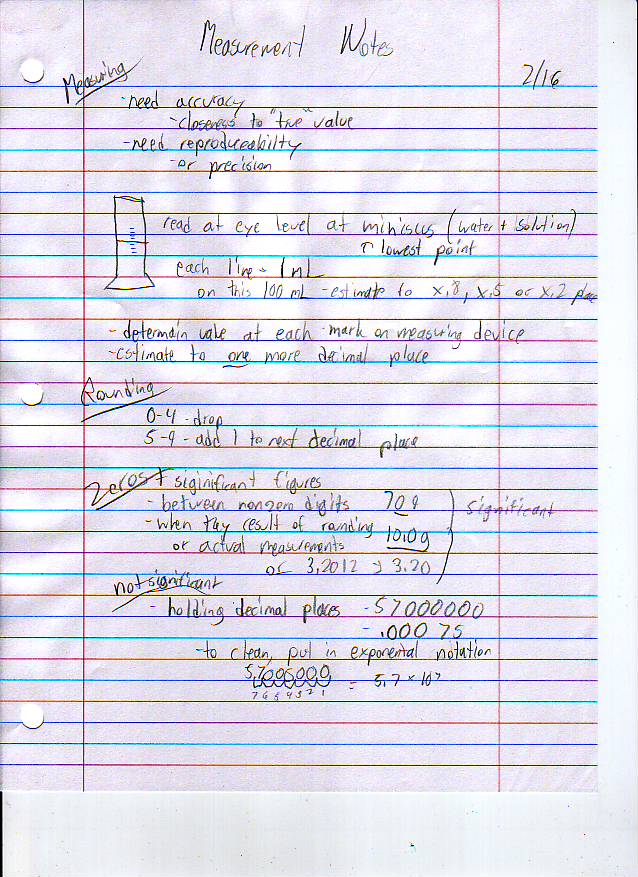 Measurement Notes
2/16
Measuring
-need accuracy
-closeness to "true" value
-need reproduceabilty
-or precision
read at eye level at miniscus (water + solution)
↑ lowest point
each line = 1 mL
on this 100 mL - estimate to x.8, x.5 or x.2 place
- determain value at each mark on measuring device
-estimate to one more decimal place
Rounding
0-4 - drop
5-9 - add 1 to next decimal place
Zeros + siginificant figures
- between nonzero digits 709
- when they result of rounding
or actual measurements 10.0g
or 3.2012 → 3.20
significant
not significant
- holding decimal places - 57000000
- .000 75
-to clean, put in exponental notation
5.7000000 = 5.7 × 10⁷
7 6 5 4 3 2 1